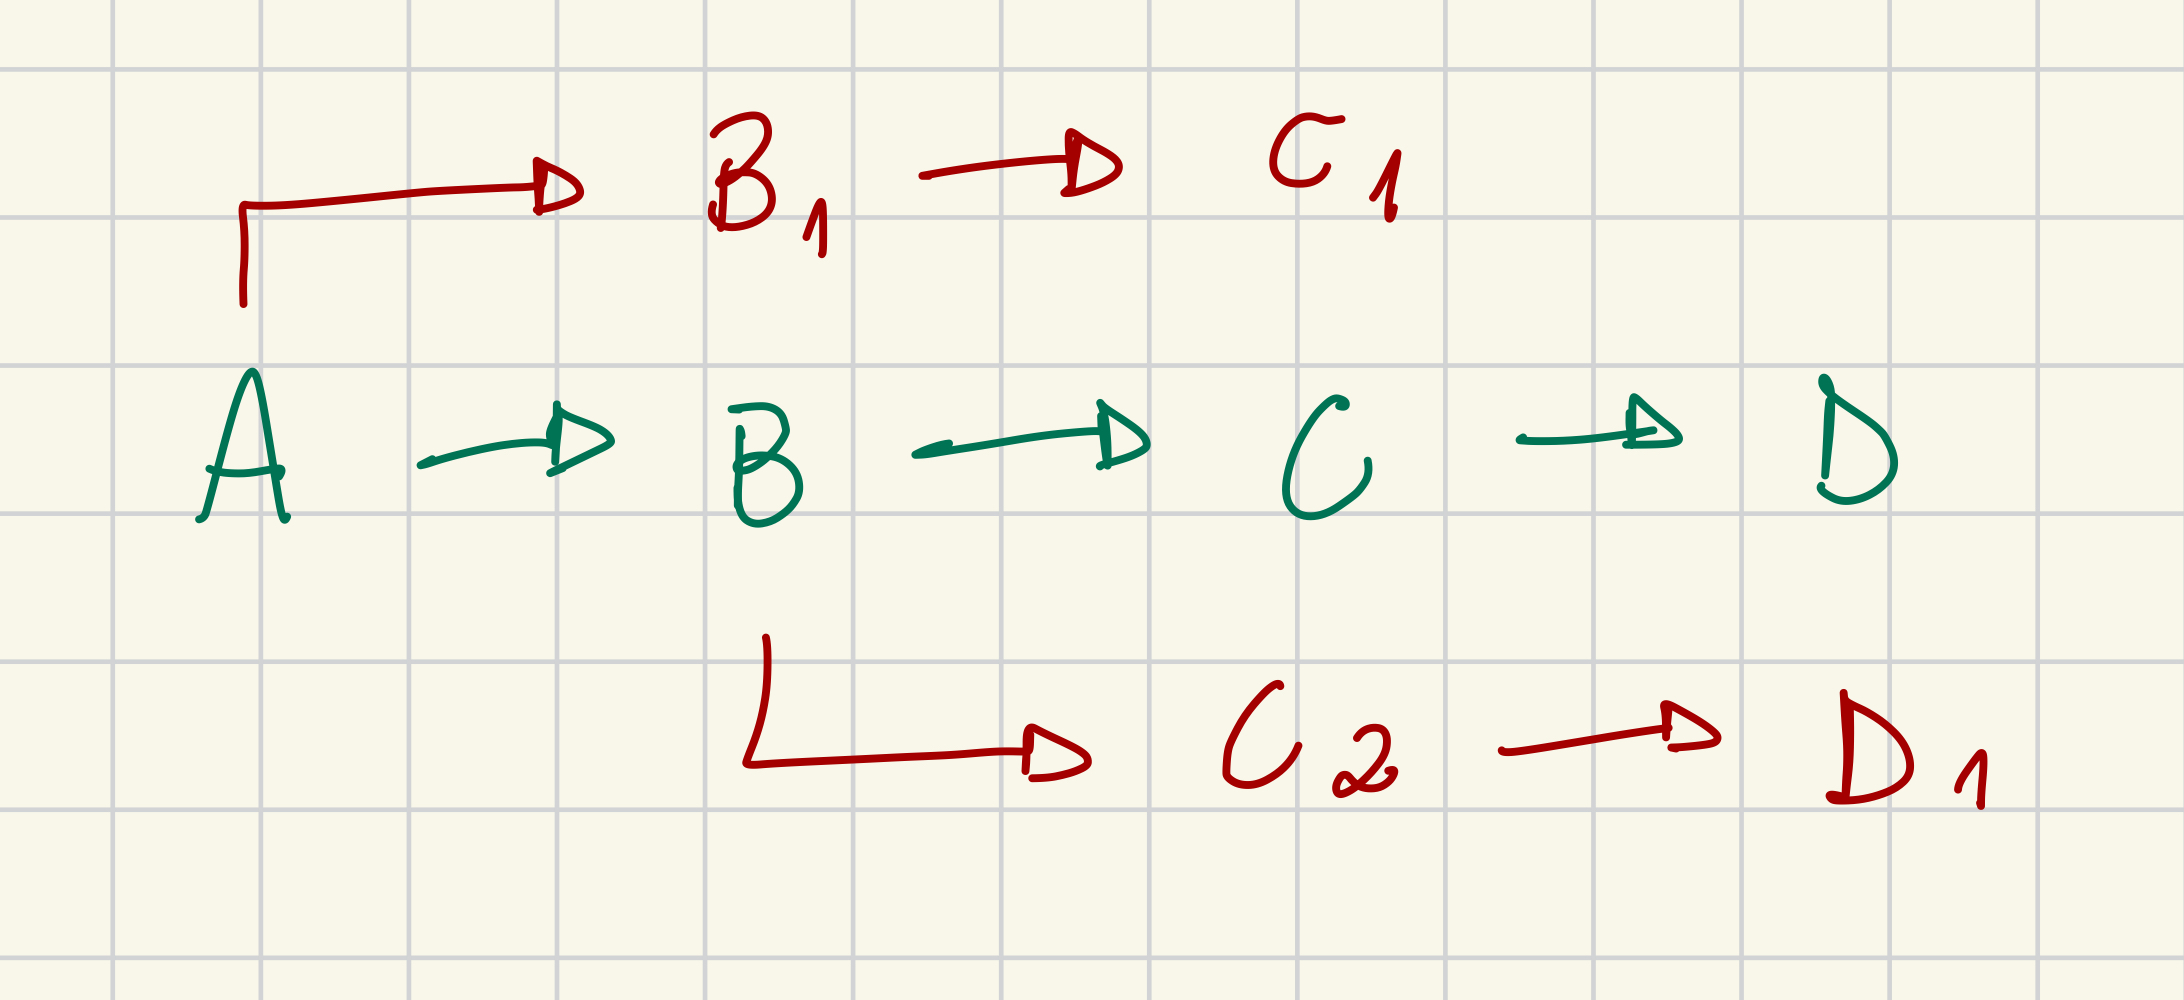 B1 → C1
A → B → C → D
C2 → D1